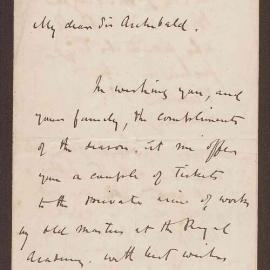 My dear Sir Archibald.
In wishing you, and
your family, the compliments
of the season, let me offer
you a couple of Tickets
to the private view of works
by old masters at the Royal
Academy. With best wishes